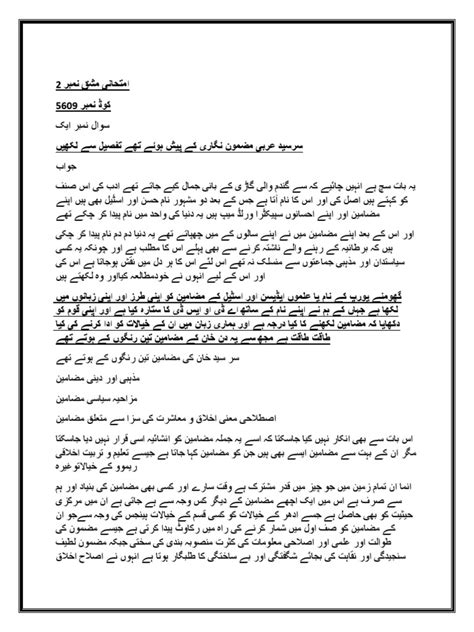 امتحانی مشق نمبر 2
کوڈ نمبر 5609
سوال نمبر ایک
سرسید عربی مضمون نگاری کے پیش ہوئے تھے تفصیل سے لکھیں
جواب
یہ بات سچ ہے انہیں چاہئیے کہ سے گندم والی گاڑی کے بانی جمال کہے جاتے تھے ادب کی اس صنف
کو کہتے ہیں اصل کی اور اس کا نام آتا ہے جس کے بعد دو مشہور نام حسن اور اسٹیل بھی ہیں اپنے
مضامین اور اپنے احسانوں سپیکٹرا ورلڈ میپ ہیں یہ دنیا کی واحد میں نام پیدا کر چکے تھے
اور اس کے بعد اپنے مضامین میں نے اپنے سالوں کے میں چھپاتے تھے یہ دنیا دم دم نام پیدا کر چکی
ہیں کہ برطانیہ کے رہنے والے ناشتہ کرنے سے بھی پہلے اس کا مطلب ہے اور چونکہ یہ کسی
سیاستدان اور مذہبی جماعتوں سے منسلک نہ تھے اس لئے اس کا ہر دل میں نقش ہوجاتا ہے اس کی
اور اس کے لیے انہوں نے خودمطالعہ کیااور وہ لکھتے ہیں
گھومنے یورپ کے نام یا علموں ایڈیسن اور اسٹیل کے مضامین کو اپنی طرز اور اپنی زبانوں میں
لکھا ہے جہاں کے ہم نے اپنے نام کے ساتھ اے ڈی او ایس ڈی کا ستارہ کیا ہے اور اپنی قوم کو
دکھایا کہ مضامین لکھنے کا کیا درجہ ہے اور ہماری زبان میں ان کے خیالات کو ادا کرنے کی کیا
طاقت طاقت ہے مجھ سے یہ دن خان کے مضامین تین رنگوں کے ہوتے تھے
سر سید خان کی مضامین تین رنگوں کے ہوتے تھے
مذہبی اور دینی مضامین
مزاحیہ سیاسی مضامین
اصطلاحی معنی اخلاق و معاشرت کی سزا سے متعلق مضامین
اس بات سے بھی انکار نہیں کیا جاسکتا کہ اسے یہ جملہ مضامین کو انشائیہ اسی قرار نہیں دیا جاسکتا
مگر ان کے بہت سے مضامین ایسے بھی ہیں جن کا مضامین کو کہا جاتا ہے جیسے تعلیم و تربیت اخلاقی
ریموو کے خیالاتوغیرہ
انما ان تمام زمین میں جو چیز میں قدر مشترک ہے وقت سارے اور کسی بھی مضامین کی بنیاد اور ہم
سے صرف ہے اس میں ایک اچھے مضامین کے دیگر کس وجہ سے ہے جاتی ہے ان میں مرکزی
حیثیت کو بھی حاصل ہے جسے ادھر کے خیالات کو کسی قسم کے خیالات ہینجس کی وجہ سےجو ان
کے مضامین کو صف اول میں شمار کرنے کی راہ میں رکاوٹ پیدا کرتی ہے جیسے مضمون کی
طوالت اور علمی اور اصلاحی معلومات کی کثرت منصوبہ بندی کی سختی جبکہ مضمون لطیف
سنجیدگی اور نقاہت کی بجائے شگفتگی اور بے ساختگی کا طلبگار ہوتا ہے انہوں نے اصلاح اخلاق